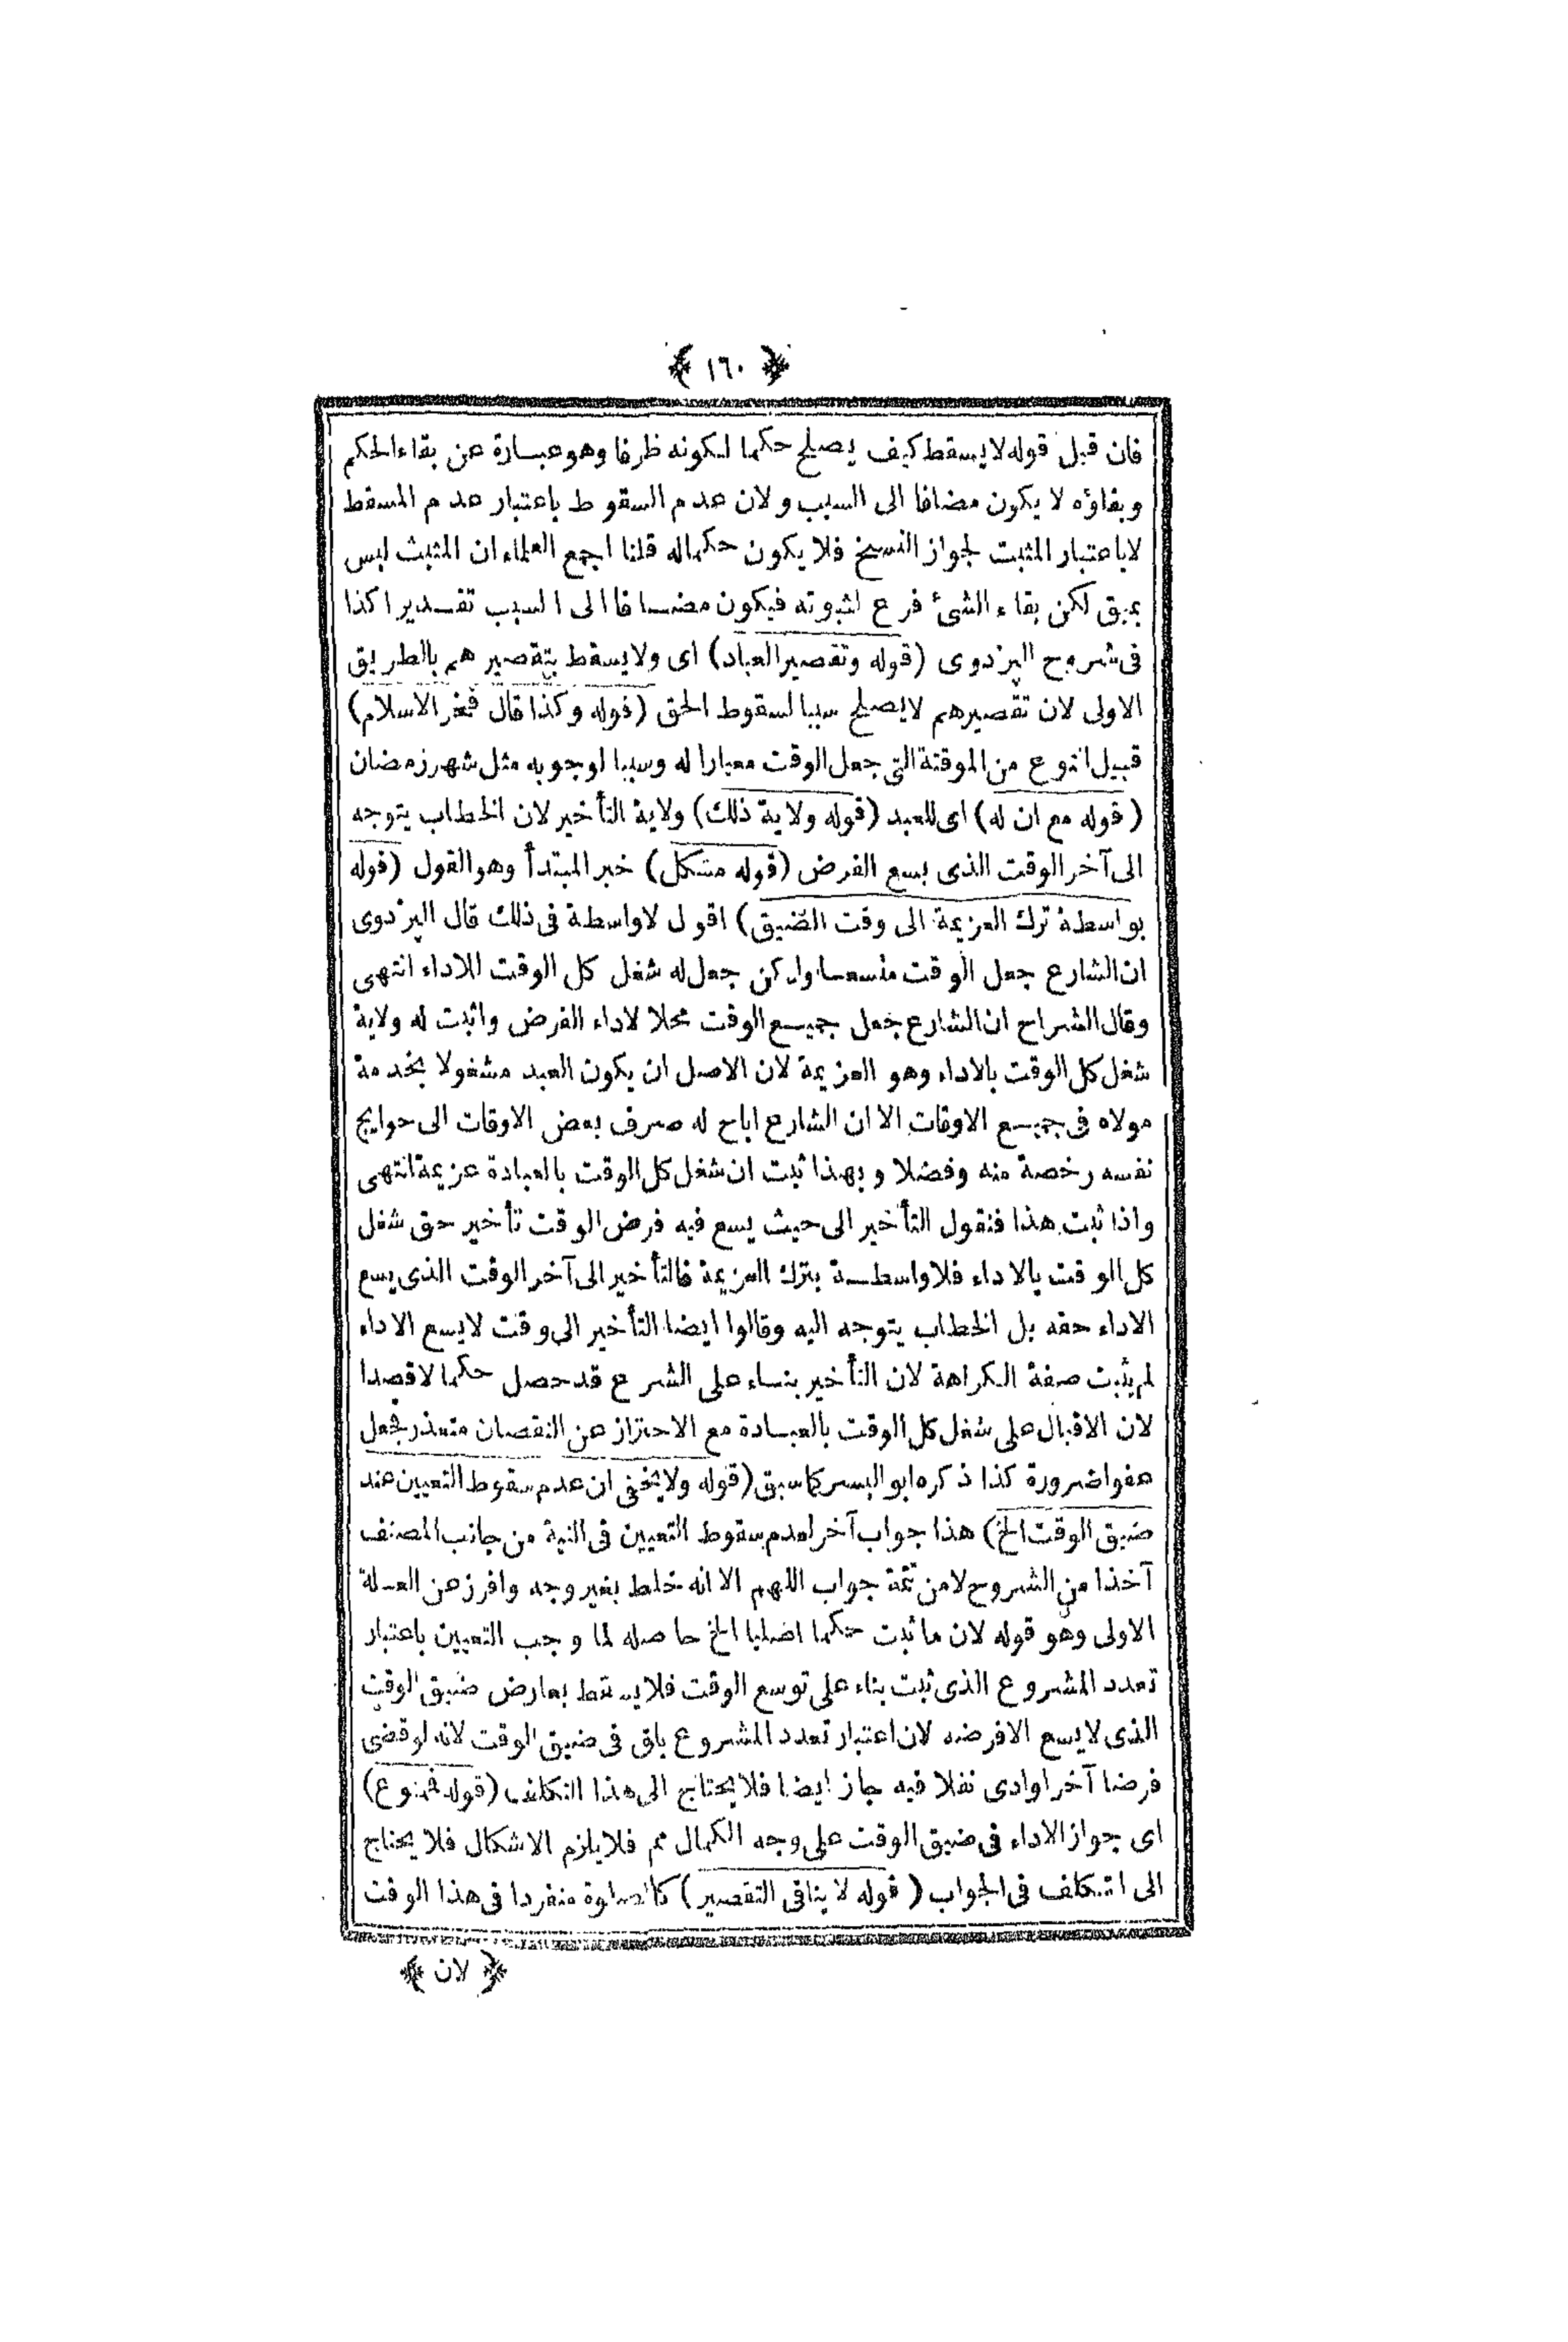 ﴿ ١٦٠ ﴾
فان قيل قوله لايسقط كيف يصلح حكما لكونه ظرفا وهو عبارة عن بقاء الحكم
وبقاؤه لا يكون مضافا الى السبب ولان عدم السقوط باعتبار عدم المسقط
لاباعتبار المثبت لجواز النسخ فلا يكون حكماله قلنا اجمع العلماء ان المثبت ليس
بمبق لكن بقاء الشئ فرع لثبوته فيكون مضافا الى السبب تقديرا كذا
فى شروح البزدوى (قوله وتقصير العباد) اى ولايسقط بتقصيرهم بالطريق
الاولى لان تقصيرهم لايصلح سببا لسقوط الحق (قوله وكذا قال فخر الاسلام)
قبيل النوع من الموقتة التى جعل الوقت معيارا له وسببا لوجوبه مثل شهر رمضان
(قوله مع ان له) اى للعبد (قوله ولاية ذلك) ولاية التأخير لان الخطاب يتوجه
الى آخر الوقت الذى يسع الفرض (قوله مشكل) خبر المبتدأ وهو القول (قوله
بواسطة ترك العزيمة الى وقت الضيق) اقول لاواسطة فى ذلك قال البزدوى
ان الشارع جعل الوقت متسعا ولكن جعل له شغل كل الوقت للاداء انتهى
وقال الشراح ان الشارع جعل جميع الوقت محلا لاداء الفرض واثبت له ولاية
شغل كل الوقت بالاداء وهو العزيمة لان الاصل ان يكون العبد مشغولا بخدمة
مولاه فى جميع الاوقات الا ان الشارع اباح له صرف بعض الاوقات الى حوايج
نفسه رخصة منه وفضلا وبهذا ثبت ان شغل كل الوقت بالعبادة عزيمة انتهى
واذا ثبت هذا فنقول التأخير الى حيث يسع فيه فرض الوقت تأخير حق شغل
كل الوقت بالاداء فلاواسطة بترك العزيمة فالتأخير الى آخر الوقت الذى يسع
الاداء حقه بل الخطاب يتوجه اليه وقالوا ايضا التأخير الى وقت لايسع الاداء
لم يثبت صفة الكراهة لان التأخير بناء على الشرع قد حصل حكما لاقصدا
لان الاقبال على شغل كل الوقت بالعبادة مع الاحتراز عن النقصان متعذر فجعل
عفوا ضرورة كذا ذكره ابو اليسر كما سبق (قوله ولايخفى ان عدم سقوط التعيين عند
ضيق الوقت الخ) هذا جواب آخر لعدم سقوط التعيين فى النية من جانب المصنف
آخذا من الشروح لامن تتمة جواب اللهم الا انه خلط بغير وجه وافرز عن العلة
الاولى وهو قوله لان ماثبت حكما اصليا الخ حاصله لما وجب التعيين باعتبار
تعدد المشروع الذى ثبت بناء على توسع الوقت فلايسقط بعارض ضيق الوقت
الذى لايسع الافرضه لان اعتبار تعدد المشروع باق فى ضيق الوقت لانه لوقضى
فرضا آخر اوادى نفلا فيه جاز ايضا فلايحتاج الى هذا التكلف (قوله فممنوع)
اى جواز الاداء فى ضيق الوقت على وجه الكمال مم فلايلزم الاشكال فلا يحتاج
الى التكلف فى الجواب (قوله لا ينافى التقصير) كالصلوة منفردا فى هذا الوقت
﴿ لان ﴾